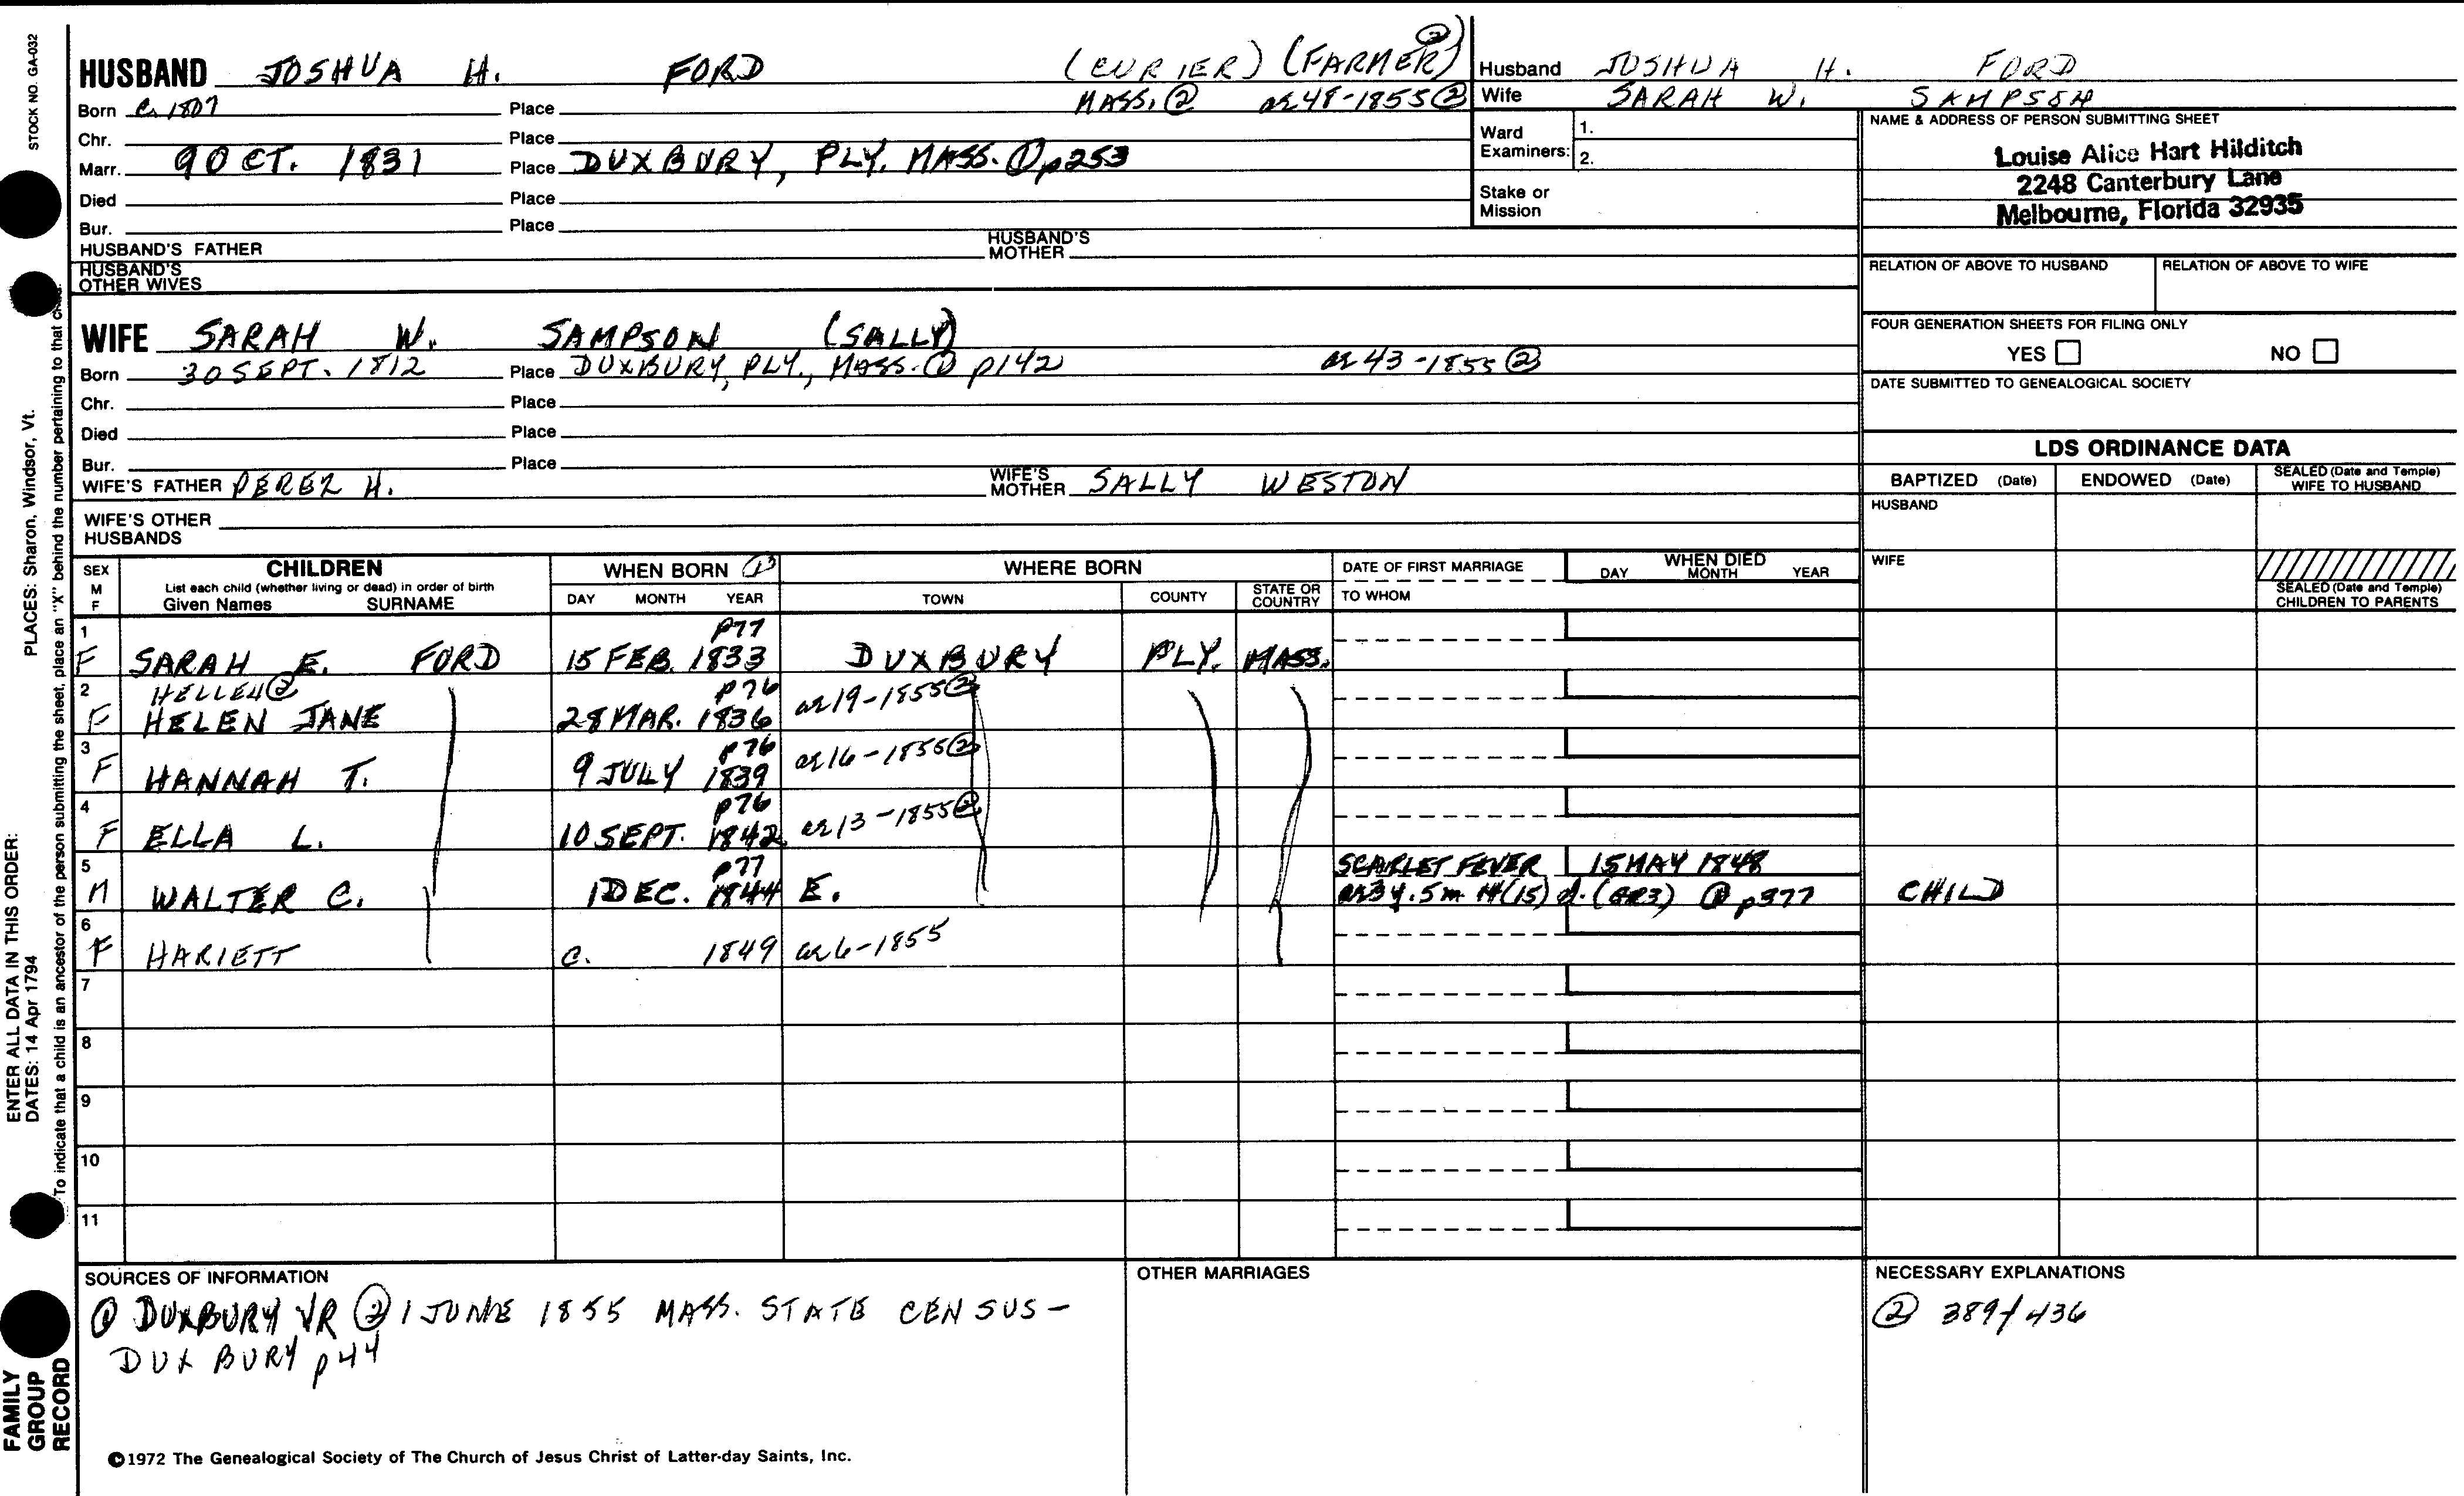 STOCK NO. GA-032
HUSBAND JOSHUA H. FORD (CURIER) (FARMER) ②
Born C. 1807 Place MASS. ② ae 48-1855 ②
Chr. Place
Marr. 9 OCT. 1831 Place DUXBURY, PLY. MASS. ① p253
Died Place
Bur. Place
HUSBAND'S FATHER HUSBAND'S MOTHER
HUSBAND'S OTHER WIVES
Husband JOSHUA H. FORD
Wife SARAH W. SAMPSON
Ward Examiners: 1.
2.
Stake or Mission
NAME & ADDRESS OF PERSON SUBMITTING SHEET
Louise Alice Hart Hilditch
2248 Canterbury Lane
Melbourne, Florida 32935
RELATION OF ABOVE TO HUSBAND RELATION OF ABOVE TO WIFE
FOUR GENERATION SHEETS FOR FILING ONLY
YES NO
DATE SUBMITTED TO GENEALOGICAL SOCIETY
WIFE SARAH W. SAMPSON (SALLY)
Born 30 SEPT. 1812 Place DUXBURY, PLY., MASS. ① p142 ae 43-1855 ②
Chr. Place
Died Place
Bur. Place
WIFE'S FATHER PEREZ H. WIFE'S MOTHER SALLY WESTON
WIFE'S OTHER HUSBANDS
LDS ORDINANCE DATA
BAPTIZED (Date) ENDOWED (Date) SEALED (Date and Temple) WIFE TO HUSBAND
HUSBAND
WIFE
SEALED (Date and Temple) CHILDREN TO PARENTS
SEX M F
CHILDREN
List each child (whether living or dead) in order of birth
Given Names SURNAME
WHEN BORN ①
DAY MONTH YEAR
WHERE BORN
TOWN COUNTY STATE OR COUNTRY
DATE OF FIRST MARRIAGE
TO WHOM
WHEN DIED
DAY MONTH YEAR
1 p77
F SARAH E. FORD 15 FEB. 1833 DUXBURY PLY. MASS.
2 HELLEN ② p76 ae 19-1855 ②
F HELEN JANE 28 MAR. 1836
3 p76 ae 16-1855 ②
F HANNAH T. 9 JULY 1839
4 p76 ae 13-1855 ②
F ELLA L. 10 SEPT. 1842
5 p77 SCARLET FEVER 15 MAY 1848
M WALTER C. 1 DEC. 1844 E. ae 3 y. 5 m 14(15) d. (GR3) ① p377 CHILD
6
F HARIETT C. 1849 ae 6-1855
7
8
9
10
11
SOURCES OF INFORMATION
① DUXBURY VR ② 1 JUNE 1855 MASS. STATE CENSUS-
DUXBURY p44
OTHER MARRIAGES
NECESSARY EXPLANATIONS
② 389/436
©1972 The Genealogical Society of The Church of Jesus Christ of Latter-day Saints, Inc.
FAMILY GROUP RECORD
ENTER ALL DATA IN THIS ORDER:
DATES: 14 Apr 1794 PLACES: Sharon, Windsor, Vt.
To indicate that a child is an ancestor of the person submitting the sheet, place an "X" behind the number pertaining to that child.